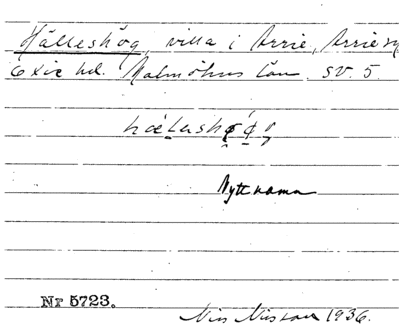 Hälleshög, villa i Arrie, Arrie sn
Oxie hd. Malmöhus län. SV. 5.
Nytt namn
Nr 5723.
Nils Nilsson 1936.